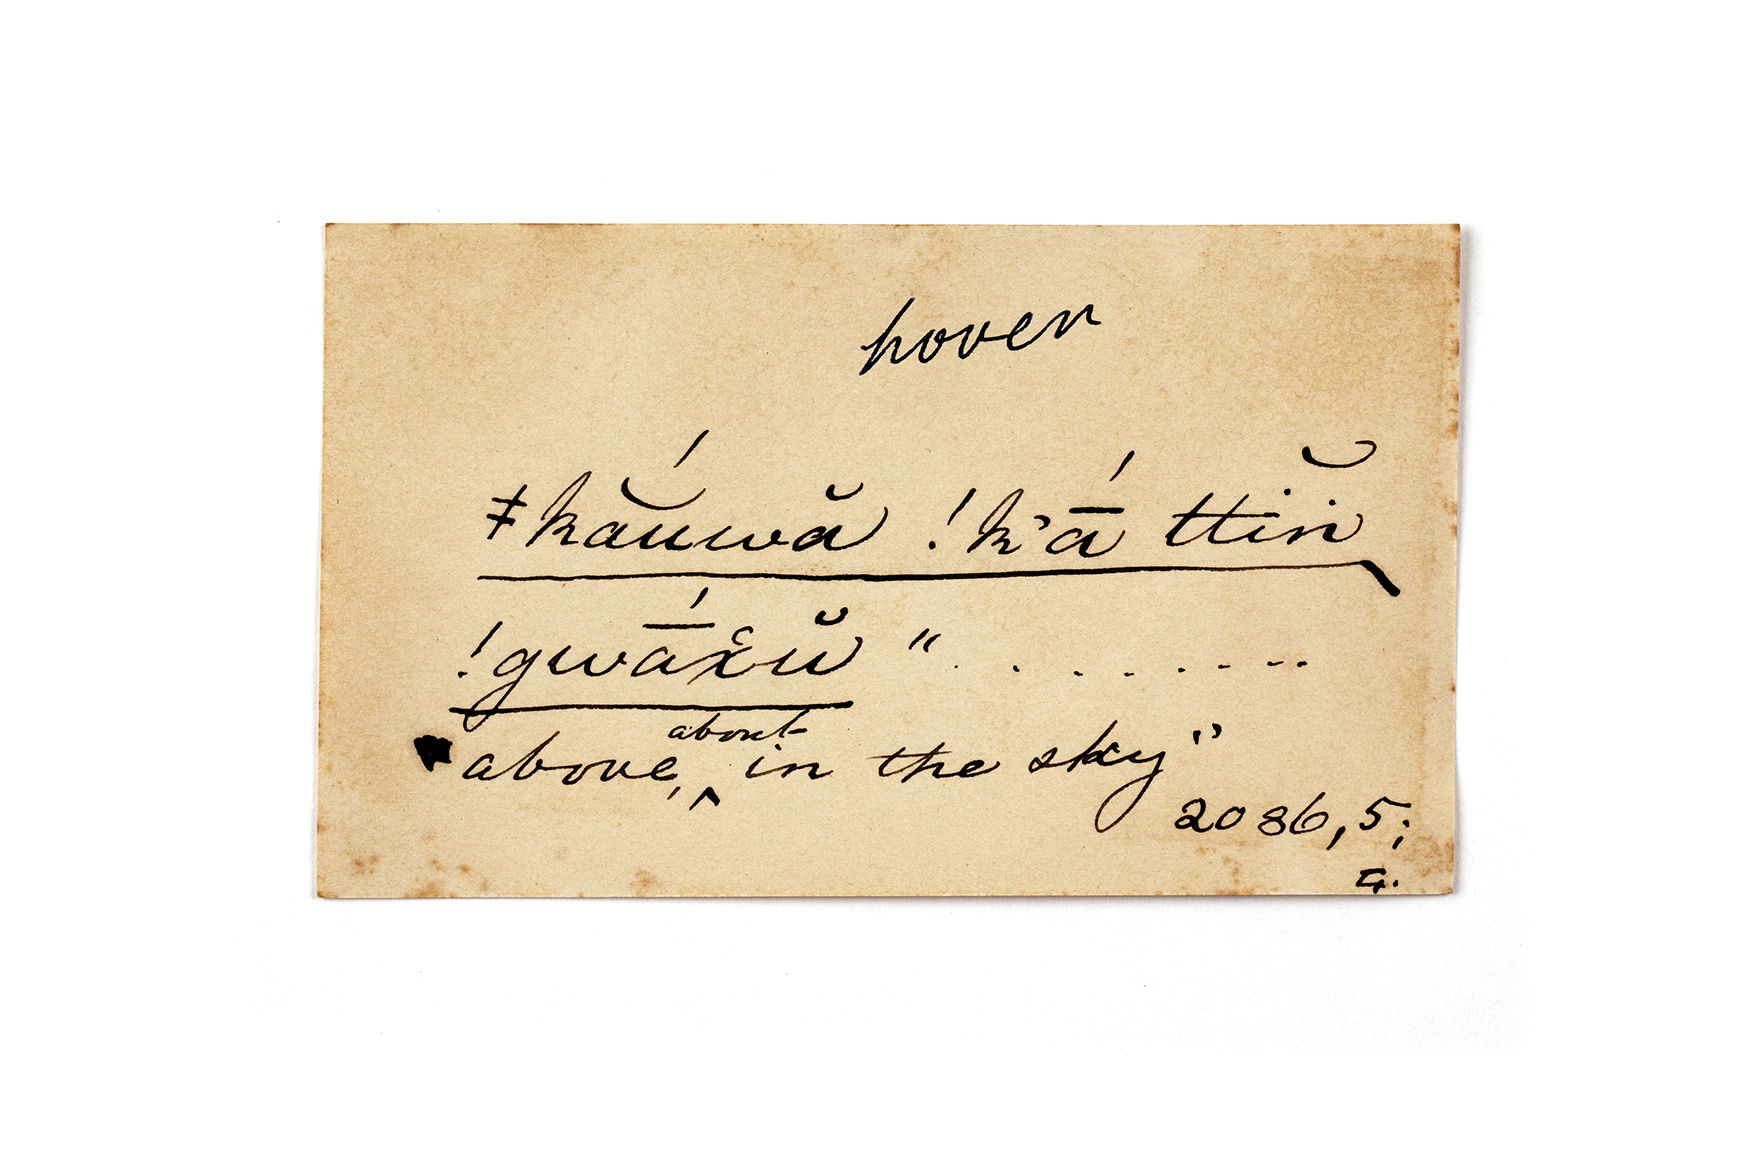 hover
ǂkăúwă !k'ā́ ttĭn̆
!gwā́x̆ŭ " . . . . . . . .
above, ^about in the sky"
2086, 5;